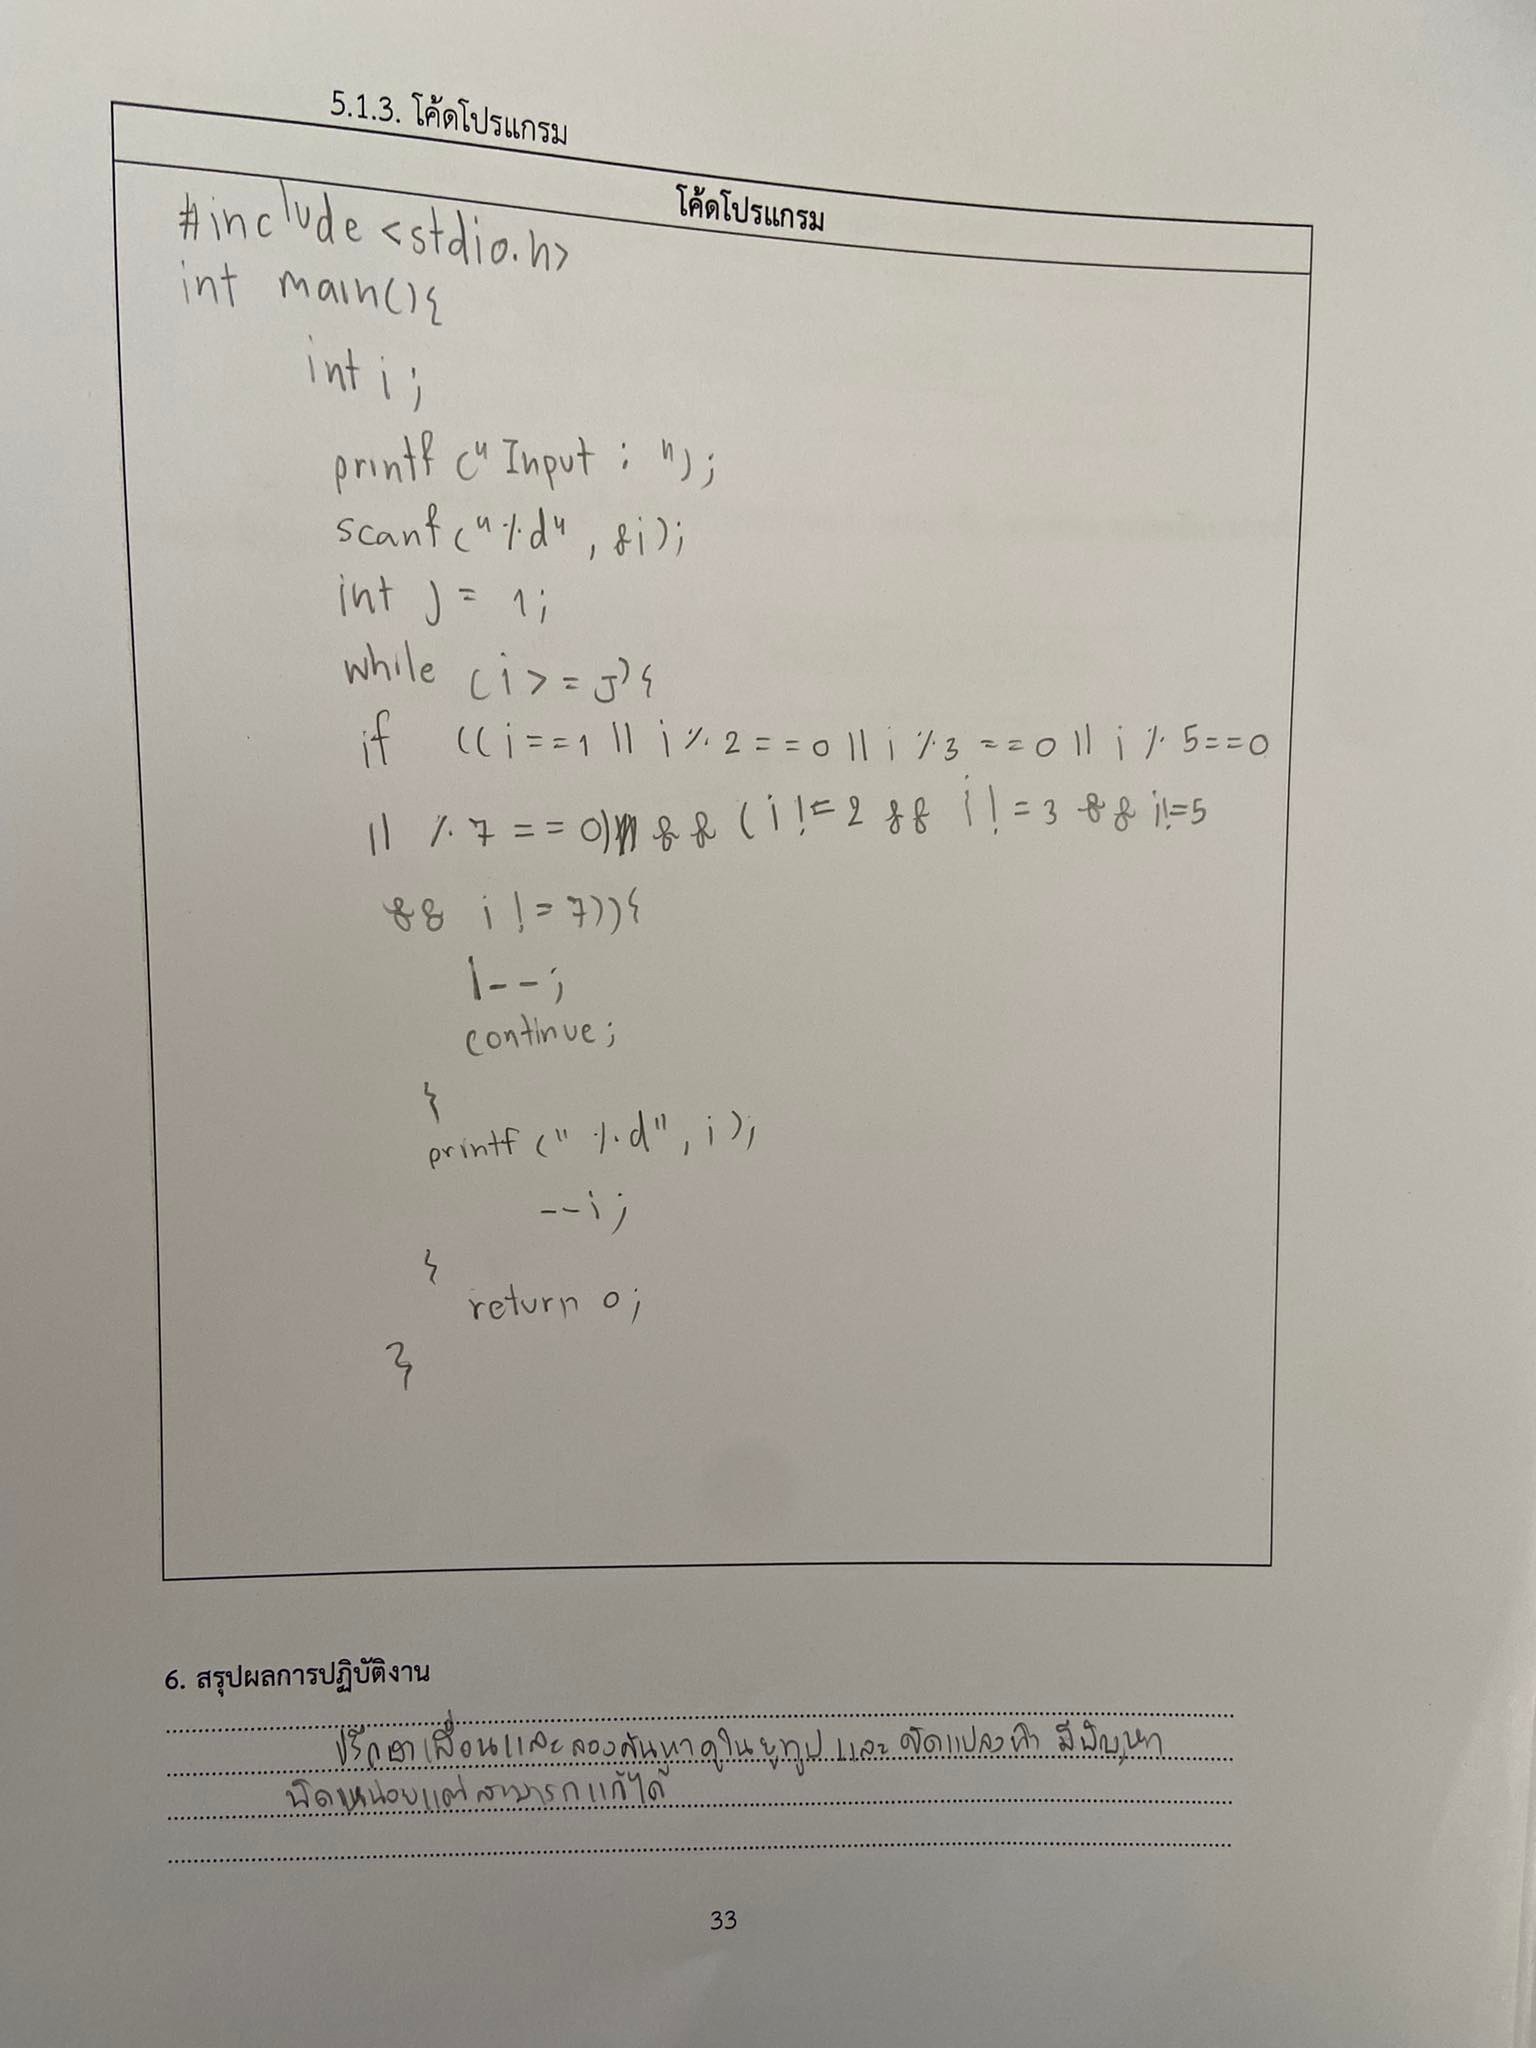 5.1.3. โค้ดโปรแกรม
โค้ดโปรแกรม
#include <stdio.h>
int main(){
int i ;
printf ("Input : ");
scanf ("%d" , &i);
int j = 1;
while (i >= j){
if ((i==1 || i % 2 == 0 || i % 3 == 0 || i % 5==0
|| % 7 == 0) && (i != 2 && i != 3 && i!=5
&& i != 7)){
i--;
continue;
}
printf (" %d", i);
--i;
}
return 0;
}
6. สรุปผลการปฏิบัติงาน
ปรึกษาเพื่อนและลองค้นหาดูในยูทูป และ ดัดแปลงทำ มีปัญหา
นิดหน่อยแต่สามารถแก้ได้
33